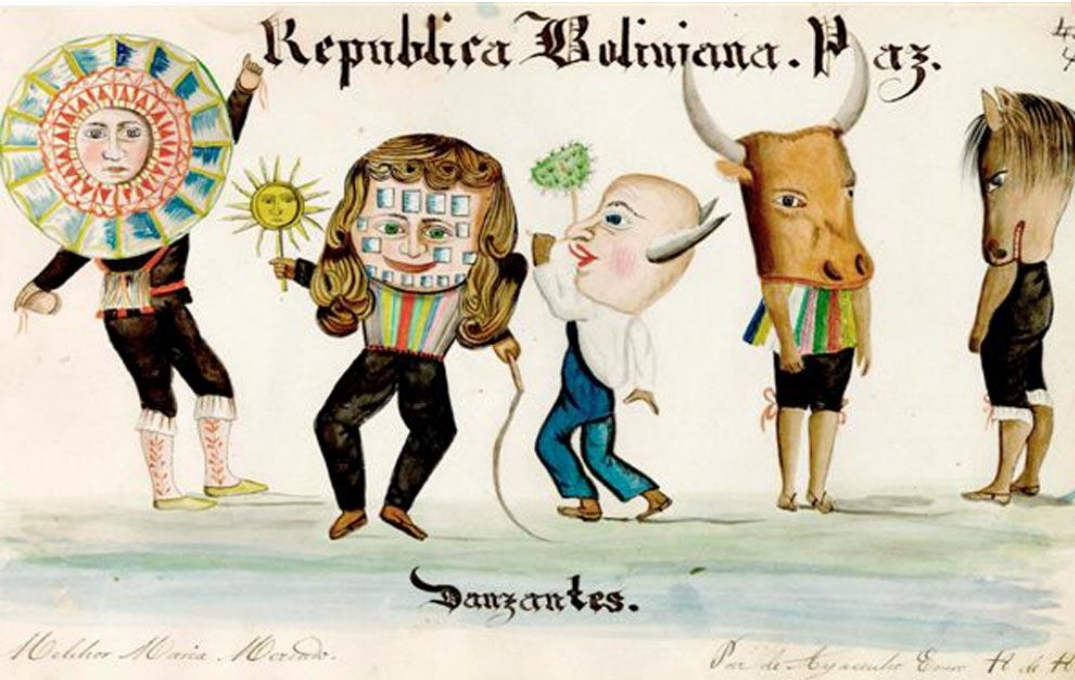 Republica Boliviana. Paz.
Danzantes.
Melchor Maria Mercado.
Paz de Ayacucho Enero